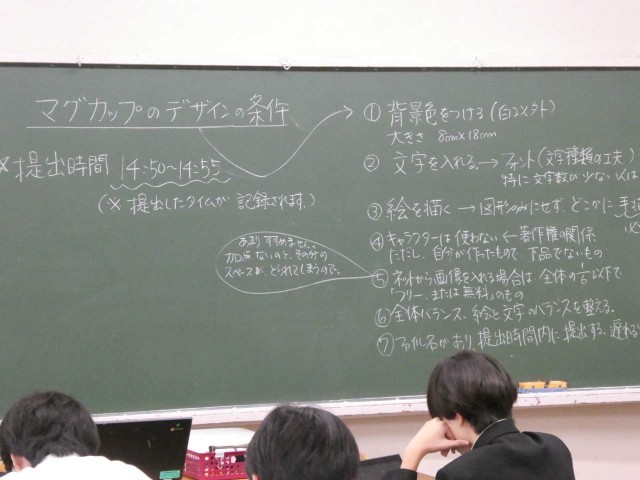 マグカップのデザインの条件
※提出時間 14:50~14:55
(※ 提出したタイムが記録されます。)
① 背景色をつける(白コメクト)
大きさ 8cm×18cm
② 文字を入れる → フォント(文字種類の工夫)
特に文字数が少ない
③ 絵を描く → 図形のみにせず、どこかに
④ キャラクターは使わない ← 著作権の関係
ただし、自分が作ったもので下品でないもの
あまりすすめません。
加点ないのと、その分の
スペースが、とられてしまうので。
⑤ ネットから画像を入れる場合は、全体の 以下で
「フリー、または無料」のもの
⑥ 全体バランス、絵と文字のバランスを整える。
⑦ 名があり、提出時間内に提出する。